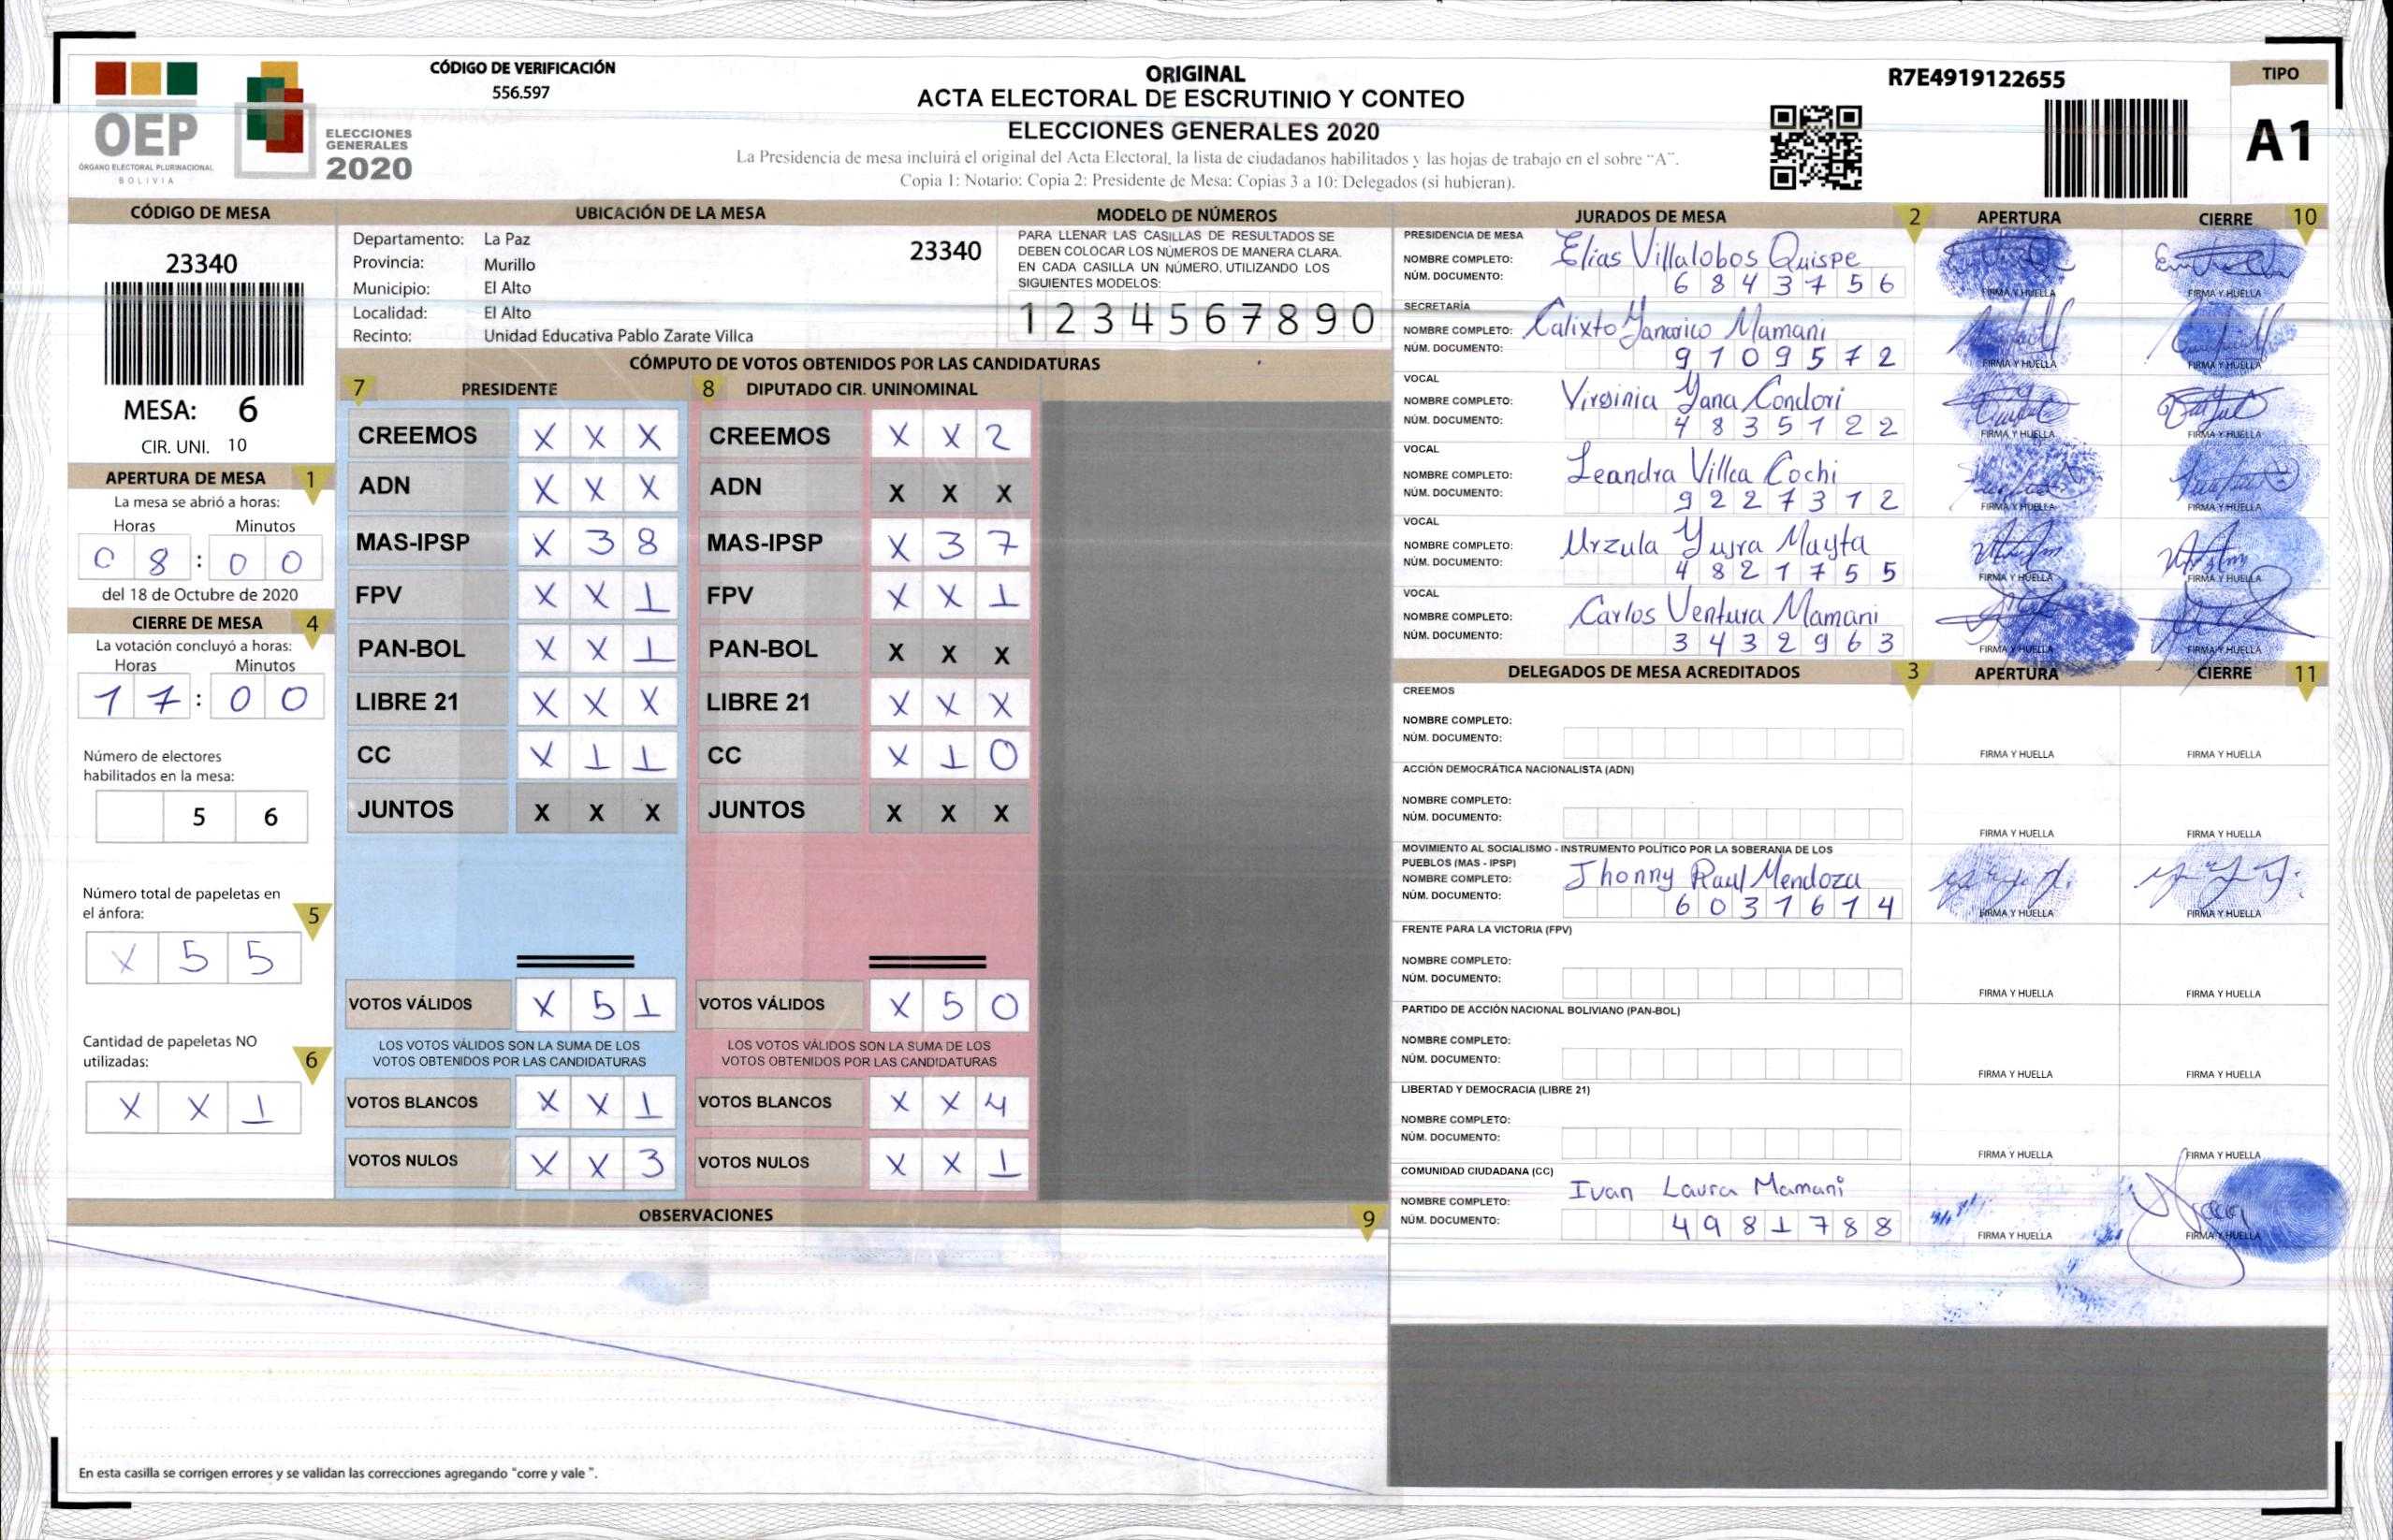 OEP
ÓRGANO ELECTORAL PLURINACIONAL
BOLIVIA
ELECCIONES
GENERALES
2020
CÓDIGO DE VERIFICACIÓN
556.597
ORIGINAL
ACTA ELECTORAL DE ESCRUTINIO Y CONTEO
ELECCIONES GENERALES 2020
La Presidencia de mesa incluirá el original del Acta Electoral, la lista de ciudadanos habilitados y las hojas de trabajo en el sobre "A".
Copia 1: Notario: Copia 2: Presidente de Mesa: Copias 3 a 10: Delegados (si hubieran).
R7E4919122655
TIPO
A1
CÓDIGO DE MESA
23340
MESA: 6
CIR. UNI. 10
APERTURA DE MESA 1
La mesa se abrió a horas:
Horas Minutos
0 8 : 0 0
del 18 de Octubre de 2020
CIERRE DE MESA 4
La votación concluyó a horas:
Horas Minutos
1 7 : 0 0
Número de electores
habilitados en la mesa:
5 6
Número total de papeletas en
el ánfora: 5
X 5 5
Cantidad de papeletas NO
utilizadas: 6
X X 1
UBICACIÓN DE LA MESA
Departamento: La Paz
Provincia: Murillo
Municipio: El Alto
Localidad: El Alto
Recinto: Unidad Educativa Pablo Zarate Villca
23340
MODELO DE NÚMEROS
PARA LLENAR LAS CASILLAS DE RESULTADOS SE
DEBEN COLOCAR LOS NÚMEROS DE MANERA CLARA.
EN CADA CASILLA UN NÚMERO, UTILIZANDO LOS
SIGUIENTES MODELOS:
1 2 3 4 5 6 7 8 9 0
CÓMPUTO DE VOTOS OBTENIDOS POR LAS CANDIDATURAS
7 PRESIDENTE 8 DIPUTADO CIR. UNINOMINAL
CREEMOS X X X CREEMOS X X 2
ADN X X X ADN X X X
MAS-IPSP X 3 8 MAS-IPSP X 3 7
FPV X X 1 FPV X X 1
PAN-BOL X X 1 PAN-BOL X X X
LIBRE 21 X X X LIBRE 21 X X X
CC X 1 1 CC X 1 0
JUNTOS X X X JUNTOS X X X
VOTOS VÁLIDOS X 5 1 VOTOS VÁLIDOS X 5 0
LOS VOTOS VÁLIDOS SON LA SUMA DE LOS LOS VOTOS VÁLIDOS SON LA SUMA DE LOS
VOTOS OBTENIDOS POR LAS CANDIDATURAS VOTOS OBTENIDOS POR LAS CANDIDATURAS
VOTOS BLANCOS X X 1 VOTOS BLANCOS X X 4
VOTOS NULOS X X 3 VOTOS NULOS X X 1
OBSERVACIONES 9
En esta casilla se corrigen errores y se validan las correcciones agregando "corre y vale ".
JURADOS DE MESA 2 APERTURA CIERRE 10
PRESIDENCIA DE MESA
NOMBRE COMPLETO: Elias Villalobos Quispe
NÚM. DOCUMENTO: 6 8 4 3 7 5 6
FIRMA Y HUELLA FIRMA Y HUELLA
SECRETARÍA
NOMBRE COMPLETO: Calixto Yanarico Mamani
NÚM. DOCUMENTO: 9 1 0 9 5 7 2
FIRMA Y HUELLA FIRMA Y HUELLA
VOCAL
NOMBRE COMPLETO: Virginia Yana Condori
NÚM. DOCUMENTO: 4 8 3 5 1 2 2
FIRMA Y HUELLA FIRMA Y HUELLA
VOCAL
NOMBRE COMPLETO: Leandra Villca Cochi
NÚM. DOCUMENTO: 9 2 2 7 3 1 2
FIRMA Y HUELLA FIRMA Y HUELLA
VOCAL
NOMBRE COMPLETO: Urzula Yujra Mayta
NÚM. DOCUMENTO: 4 8 2 1 7 5 5
FIRMA Y HUELLA FIRMA Y HUELLA
VOCAL
NOMBRE COMPLETO: Carlos Ventura Mamani
NÚM. DOCUMENTO: 3 4 3 2 9 6 3
FIRMA Y HUELLA FIRMA Y HUELLA
DELEGADOS DE MESA ACREDITADOS 3 APERTURA CIERRE 11
CREEMOS
NOMBRE COMPLETO:
NÚM. DOCUMENTO:
FIRMA Y HUELLA FIRMA Y HUELLA
ACCIÓN DEMOCRÁTICA NACIONALISTA (ADN)
NOMBRE COMPLETO:
NÚM. DOCUMENTO:
FIRMA Y HUELLA FIRMA Y HUELLA
MOVIMIENTO AL SOCIALISMO - INSTRUMENTO POLÍTICO POR LA SOBERANIA DE LOS
PUEBLOS (MAS - IPSP)
NOMBRE COMPLETO: Jhonny Raul Mendoza
NÚM. DOCUMENTO: 6 0 3 1 6 1 4
FIRMA Y HUELLA FIRMA Y HUELLA
FRENTE PARA LA VICTORIA (FPV)
NOMBRE COMPLETO:
NÚM. DOCUMENTO:
FIRMA Y HUELLA FIRMA Y HUELLA
PARTIDO DE ACCIÓN NACIONAL BOLIVIANO (PAN-BOL)
NOMBRE COMPLETO:
NÚM. DOCUMENTO:
FIRMA Y HUELLA FIRMA Y HUELLA
LIBERTAD Y DEMOCRACIA (LIBRE 21)
NOMBRE COMPLETO:
NÚM. DOCUMENTO:
FIRMA Y HUELLA FIRMA Y HUELLA
COMUNIDAD CIUDADANA (CC)
NOMBRE COMPLETO: Ivan Laura Mamani
NÚM. DOCUMENTO: 4 9 8 1 7 8 8
FIRMA Y HUELLA FIRMA Y HUELLA